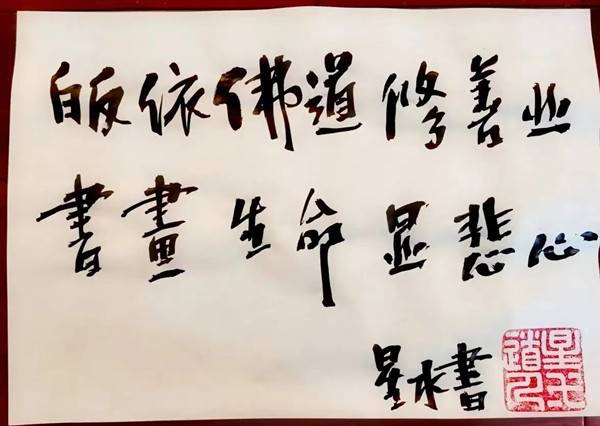 皈依佛道 修善业
書畫生命 显悲心
星水書